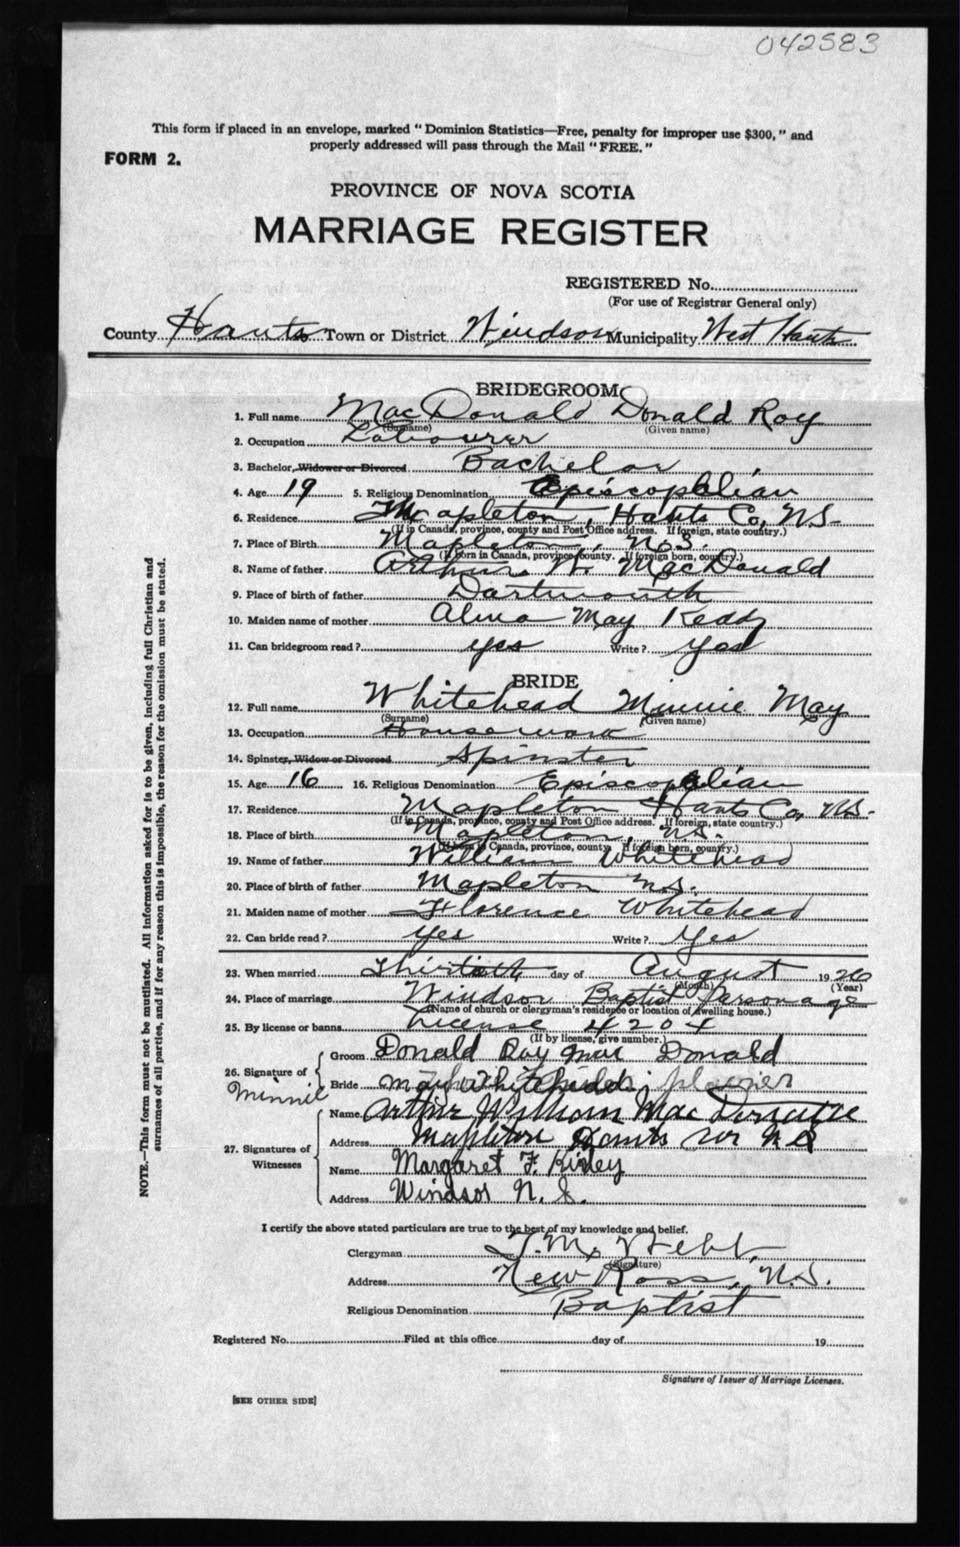 042583
This form if placed in an envelope, marked "Dominion Statistics—Free, penalty for improper use $300," and
properly addressed will pass through the Mail "FREE."
FORM 2.
PROVINCE OF NOVA SCOTIA
MARRIAGE REGISTER
REGISTERED No.
(For use of Registrar General only)
County Hants Town or District Windsor Municipality West Hants
BRIDEGROOM
1. Full name MacDonald Donald Roy
(Surname) (Given name)
2. Occupation Labourer
3. Bachelor, Widower or Divorced Bachelor
4. Age 19 5. Religious Denomination Episcopalian
6. Residence Mapleton, Hants Co, N.S.
(If in Canada, province, county and Post Office address. If foreign, state country.)
7. Place of Birth Mapleton, N.S.
(If born in Canada, province, county. If foreign born, country.)
8. Name of father Arthur W. MacDonald
9. Place of birth of father Dartmouth
10. Maiden name of mother Alma May Keddy
11. Can bridegroom read? yes Write? yes
BRIDE
12. Full name Whitehead Minnie May
(Surname) (Given name)
13. Occupation Housework
14. Spinster, Widow or Divorced Spinster
15. Age 16 16. Religious Denomination Episcopalian
17. Residence Mapleton Hants Co, N.S.
(If in Canada, province, county and Post Office address. If foreign, state country.)
18. Place of birth Mapleton, N.S.
(If born in Canada, province, county. If foreign born, country.)
19. Name of father William Whitehead
20. Place of birth of father Mapleton N.S.
21. Maiden name of mother Florence Whitehead
22. Can bride read? Yes Write? Yes
23. When married Thirtieth day of August 1926
(Month) (Year)
24. Place of marriage Windsor Baptist Parsonage
(Name of church or clergyman's residence or location of dwelling house.)
25. By license or banns License 4204
(If by license, give number.)
26. Signature of
Groom Donald Roy Mac Donald
Bride May Whitehead
Minnie
27. Signatures of Witnesses
Name Arthur William Mac
Address Mapleton Hants N S
Name Margaret F. Kirley
Address Windsor N. S.
I certify the above stated particulars are true to the best of my knowledge and belief.
Clergyman T. M. Webb
(Signature)
Address New Ross, N.S.
Religious Denomination Baptist
Registered No. Filed at this office day of 19
Signature of Issuer of Marriage Licenses.
[SEE OTHER SIDE]
NOTE.—This form must not be mutilated. All information asked for is to be given, including full Christian and
surnames of all parties, and if for any reason this is impossible, the reason for the omission must be stated.